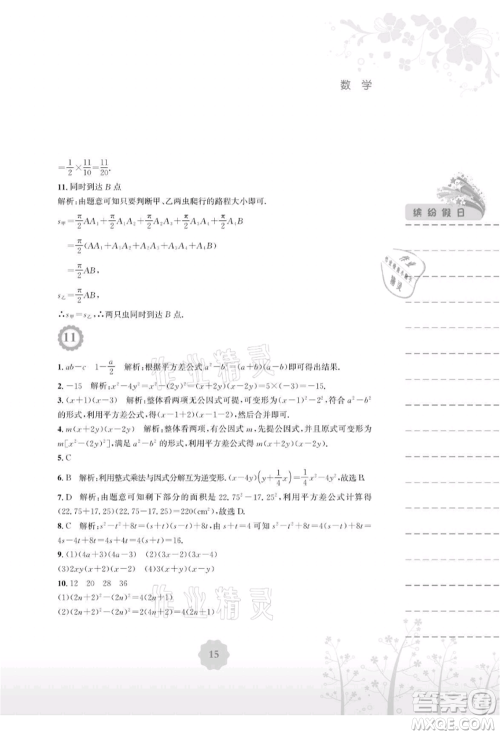 数 学
=1/2×11/10=11/20.
11. 同时到达 B 点
解析:由题意可知只要判断甲、乙两虫爬行的路程大小即可.
s甲=π/2 AA₁+π/2 A₁A₂+π/2 A₂A₃+π/2 A₃B
=π/2 (AA₁+A₁A₂+A₂A₃+A₃B)
=π/2 AB,
s乙=π/2 AB,
∴s甲=s乙,∴两只虫同时到达 B 点.
缤纷假日
11
1. ab-c 1-a/2 解析:根据平方差公式 a²-b²=(a+b)(a-b)可得出结果.
2. -15 解析:x²-4y²=x²-(2y)²=(x+2y)(x-2y)=5×(-3)=-15.
3. (x+1)(x-1) 解析:整体看两项无公因式;可变形为(x²-1²)的形式,符合 a²-b² 的形式,利用平方差公式分解为(x+1)(x-1).
4. m(x+2y)(x-2y) 解析:整体看两项有公因式 m;提取公因式后原式可变形为
m[x²-(2y)²]的形式,符合 a²-b² 的形式,利用平方差公式分解为 m(x+2y)(x-2y).
5. C
6. B 解析:利用整式乘法与因式分解互为逆变形.(x-4y)(y+1/4x)=1/4x²-4y²,故选 B.
7. D 解析:由题意可知剩下部分的面积是 22.75²-17.25²,利用平方差公式计算得
(22.75+17.25)(22.75-17.25)=220(cm²),故选 D.
8. C 解析:s²-t²+8t=(s+t)(s-t)+8t,由 s+t=4,得 s²-t²+8t=4(s-t)+8t=
4s+4t=4(s+t)=16.
9. (1)(4a+3)(4a-3) (2)4(a+2b)(a-2b)
(3)2xy(x+2)(x-2) (4)3x(x+2y)(x-2y)
10. 12 20 28 36
(1)(2n+2)²-(2n)²=4(2n+1)
(2)(2n+2)²-(2n)²=(2n+2+2n)(2n+2-2n)=2(4n+2)=4(2n+1)
15
作业精灵
作业精灵
答案圈
MXQE.COM